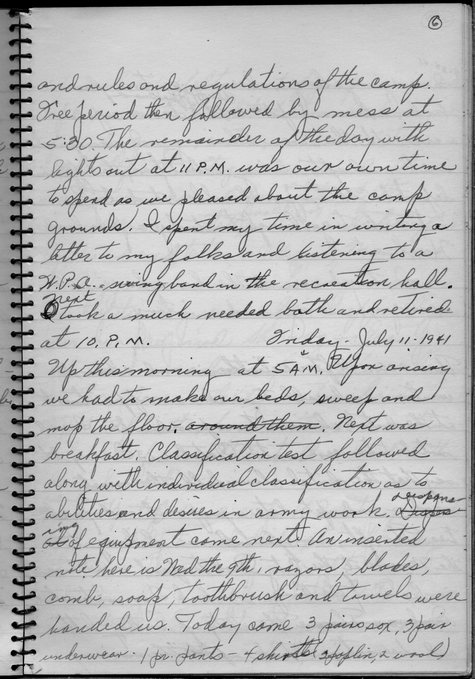 6
and rules and regulations of the camp.
Free period then followed by mess at
5:30. The remainder of the day with
lights out at 11 P.M. was our own time
to spend as we pleased about the camp
grounds. I spent my time in writing a
letter to my folks and listening to a
W.P.A. swing band in the recreation hall.
next
I took a much needed bath and retired
at 10, P.M. Friday - July 11 - 1941
Up this morning at 5 A.M. Upon arising
we had to make our beds, sweep and
mop the floor, around them. Next was
breakfast. Classification test followed
along with individual classification as to
abilities and desires in army work.
of equipment came next. An inserted
note here is Wed the 9th, razors, blades,
comb, soap, toothbrush and towels were
handed us. Today came 3 pairs sox, 3 pair
underwear - 1 pr. pants - 4 shirts (2 poplin, 2 wool)